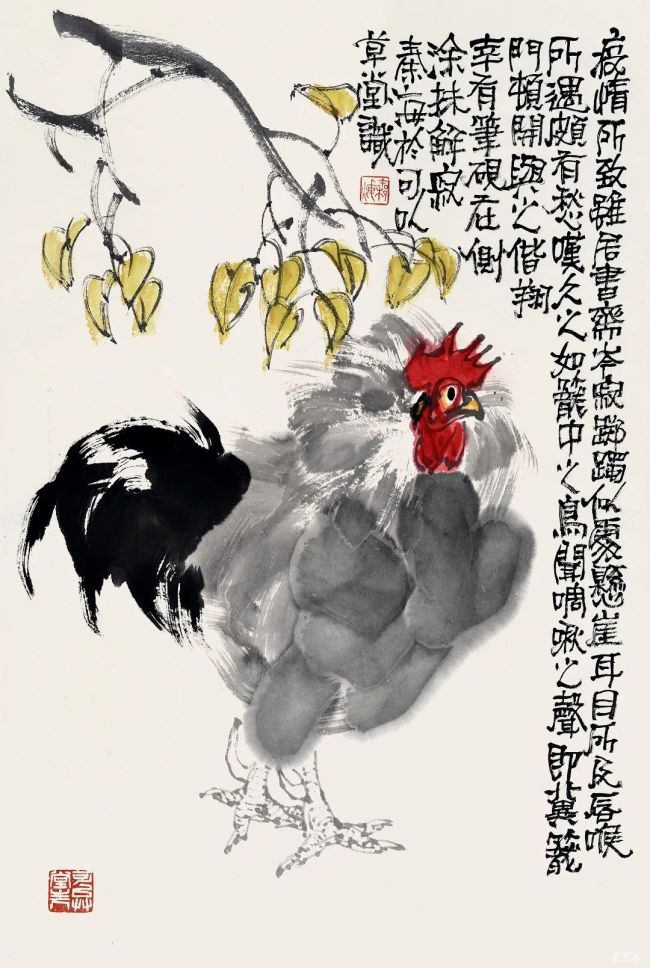 疫情所致雖居書齋岑寂躑躅似處懸崖耳目所及唇喉
所遇頗有愁嘆久之如籠中之鳥聞啁啾之聲即冀籠
門頓開與之偕翔
幸有筆硯在側
涂抹解寂
秦海於可以
草堂識